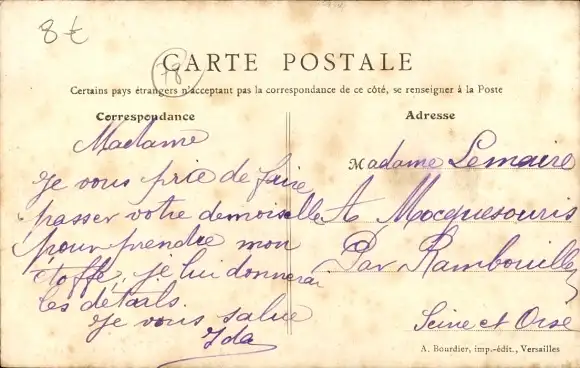 8 €
78
CARTE POSTALE
Certains pays étrangers n'acceptant pas la correspondance de ce côté, se renseigner à la Poste
Correspondance
Madame
Je vous prie de faire
passer votre demoiselle
pour prendre mon
étoffe, je lui donnerai
les détails.
Je vous salue
Ida
Adresse
Madame Lemaire
A Mocquesouris
Par Rambouillet
Seine et Oise
A. Bourdier, imp.-édit., Versailles